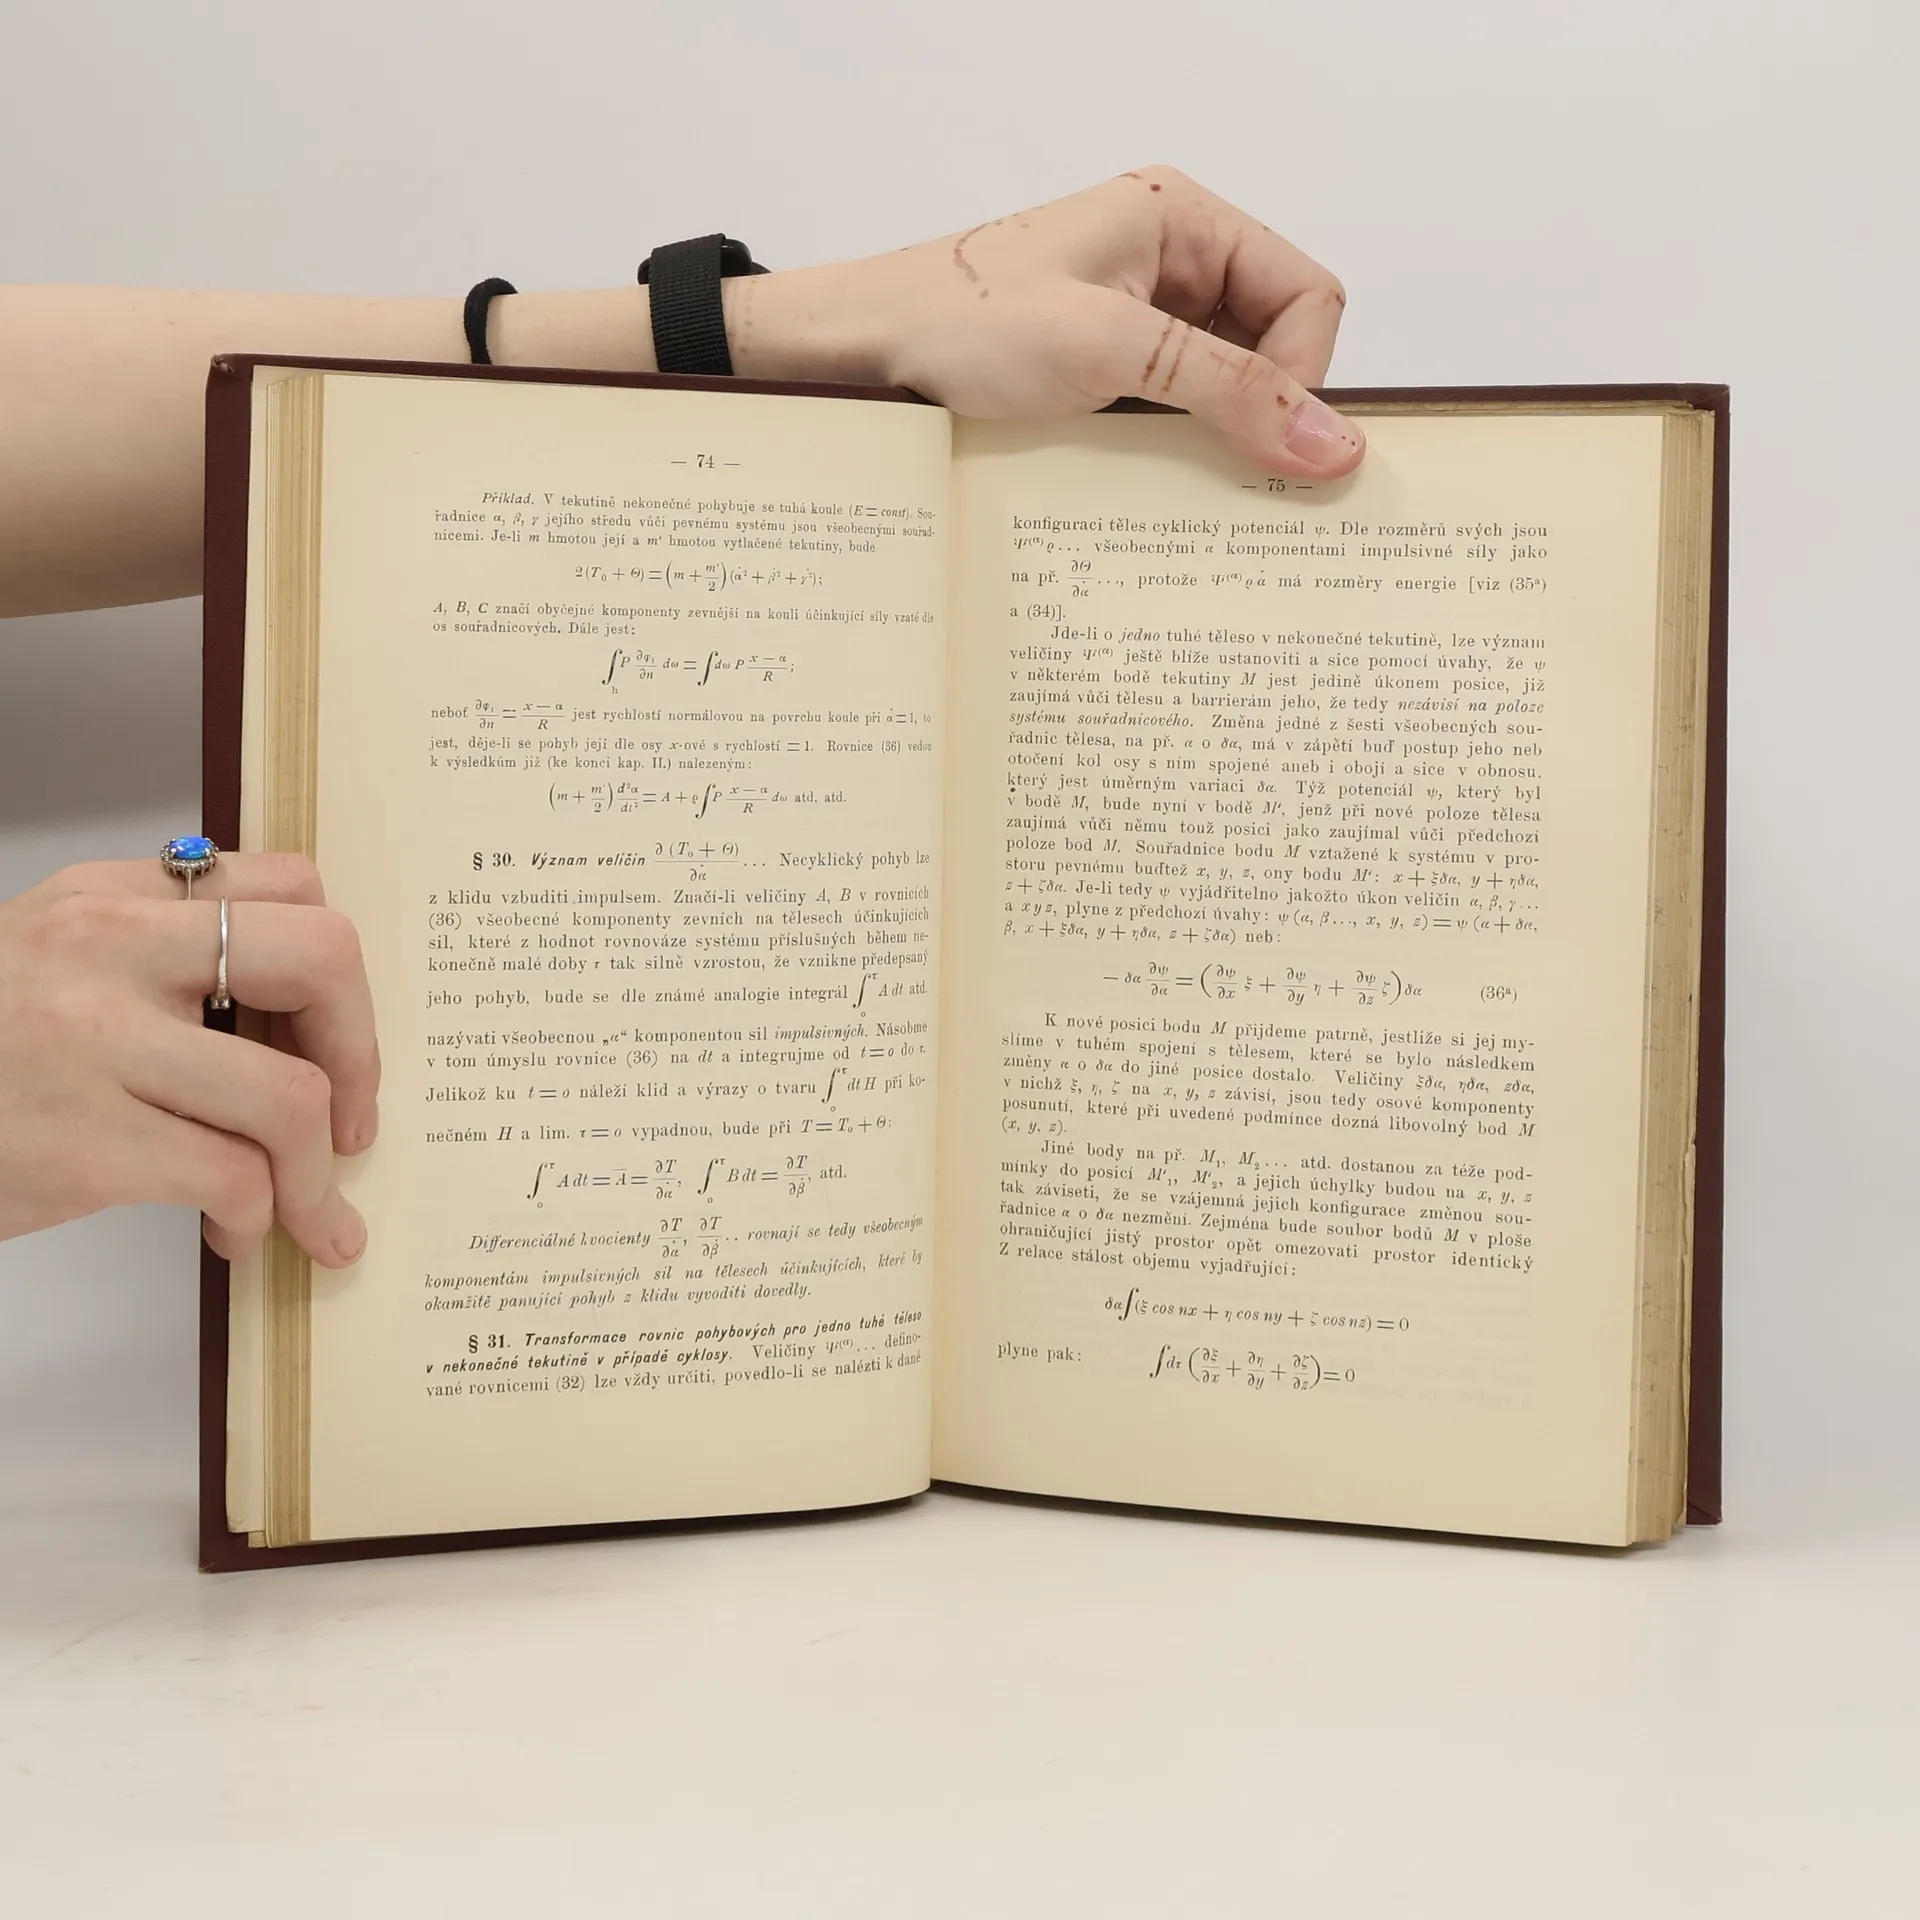 — 74 —
Příklad. V tekutině nekonečné pohybuje se tuhá koule (E = const). Sou-
řadnice α, β, γ jejího středu vůči pevnému systému jsou všeobecnými souřad-
nicemi. Je-li m hmotou její a m' hmotou vytlačené tekutiny, bude
2 (T₀ + Θ) = (m + m'/2) (α̇² + β̇² + γ̇²);
A, B, C značí obyčejné komponenty zevnější na kouli účinkující síly vzaté dle
os souřadnicových. Dále jest:
∫ₕ P ∂φ₁/∂n dω = ∫ dω P (x — α)/R;
neboť ∂φ₁/∂n = (x — α)/R jest rychlostí normálovou na povrchu koule při α̇ = 1, to
jest, děje-li se pohyb její dle osy x-ové s rychlostí = 1. Rovnice (36) vedou
k výsledkům již (ke konci kap. II.) nalezeným:
(m + m'/2) d²α/dt² = A + ϱ ∫ P (x — α)/R dω atd. atd.
§ 30. Význam veličin ∂ (T₀ + Θ)/∂α̇ ... Necyklický pohyb lze
z klidu vzbuditi impulsem. Značí-li veličiny A, B v rovnicích
(36) všeobecné komponenty zevních na tělesech účinkujících
sil, které z hodnot rovnováze systému příslušných během ne-
konečně malé doby τ tak silně vzrostou, že vznikne předepsaný
jeho pohyb, bude se dle známé analogie integrál ∫₀^τ A dt atd.
nazývati všeobecnou „α“ komponentou sil impulsivných. Násobme
v tom úmyslu rovnice (36) na dt a integrujme od t = o do τ.
Jelikož ku t = o náleží klid a výrazy o tvaru ∫₀^τ dt H při ko-
nečném H a lim. τ = o vypadnou, bude při T = T₀ + Θ:
∫₀^τ A dt = A̅ = ∂T/∂α̇, ∫₀^τ B dt = ∂T/∂β̇, atd.
Differenciálné kvocienty ∂T/∂α̇, ∂T/∂β̇ .. rovnají se tedy všeobecným
komponentám impulsivných sil na tělesech účinkujících, které by
okamžitě panující pohyb z klidu vyvoditi dovedly.
§ 31. Transformace rovnic pohybových pro jedno tuhé těleso
v nekonečné tekutině v případě cyklosy. Veličiny Ψ⁽ᵅ⁾... defino-
vané rovnicemi (32) lze vždy určiti, povedlo-li se nalézti k dané
— 75 —
konfiguraci těles cyklický potenciál ψ. Dle rozměrů svých jsou
Ψ⁽ᵅ⁾ϱ... všeobecnými α komponentami impulsivné síly jako
na př. ∂Θ/∂α̇ ..., protože Ψ⁽ᵅ⁾ϱ α̇ má rozměry energie [viz (35ᵃ)
a (34)].
Jde-li o jedno tuhé těleso v nekonečné tekutině, lze význam
veličiny Ψ⁽ᵅ⁾ ještě blíže ustanoviti a sice pomocí úvahy, že ψ
v některém bodě tekutiny M jest jedině úkonem posice, již
zaujímá vůči tělesu a barrierám jeho, že tedy nezávisí na poloze
systému souřadnicového. Změna jedné z šesti všeobecných sou-
řadnic tělesa, na př. α o δα, má v zápětí buď postup jeho neb
otočení kol osy s ním spojené aneb i obojí a sice v obnosu,
který jest úměrným variaci δα. Týž potenciál ψ, který byl
v bodě M, bude nyní v bodě M', jenž při nové poloze tělesa
zaujímá vůči němu touž posici jako zaujímal vůči předchozí
poloze bod M. Souřadnice bodu M vztažené k systému v pro-
storu pevnému buďtež x, y, z, ony bodu M': x + ξδα, y + ηδα,
z + ζδα. Je-li tedy ψ vyjádřitelno jakožto úkon veličin α, β, γ...
a x y z, plyne z předchozí úvahy: ψ (α, β..., x, y, z) = ψ (α + δα,
β, x + ξδα, y + ηδα, z + ζδα) neb:
— δα ∂ψ/∂α = (∂ψ/∂x ξ + ∂ψ/∂y η + ∂ψ/∂z ζ) δα (36ᵃ)
K nové posici bodu M přijdeme patrně, jestliže si jej my-
slíme v tuhém spojení s tělesem, které se bylo následkem
změny α o δα do jiné posice dostalo. Veličiny ξδα, ηδα, zδα,
v nichž ξ, η, ζ na x, y, z závisí, jsou tedy osové komponenty
posunutí, které při uvedené podmínce dozná libovolný bod M
(x, y, z).
Jiné body na př. M₁, M₂... atd. dostanou za téže pod-
mínky do posicí M'₁, M'₂, a jejich úchylky budou na x, y, z
tak záviseti, že se vzájemná jejich konfigurace změnou sou-
řadnice α o δα nezmění. Zejména bude soubor bodů M v ploše
ohraničující jistý prostor opět omezovati prostor identický
Z relace stálost objemu vyjadřující:
δα ∫ (ξ cos nx + η cos ny + ζ cos nz) = 0
plyne pak: ∫ dτ (∂ξ/∂x + ∂η/∂y + ∂ζ/∂z) = 0